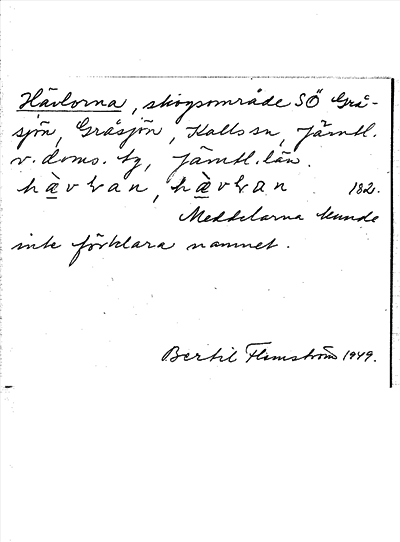 Hävlorna, skogsområde SÖ Grå-
sjön, Gråsjön, Kalls sn, Jämtl.
v. doms. tg, Jämtl. län.
182.
Meddelarna kunde
inte förklara namnet.
Bertil Flemström 1949.